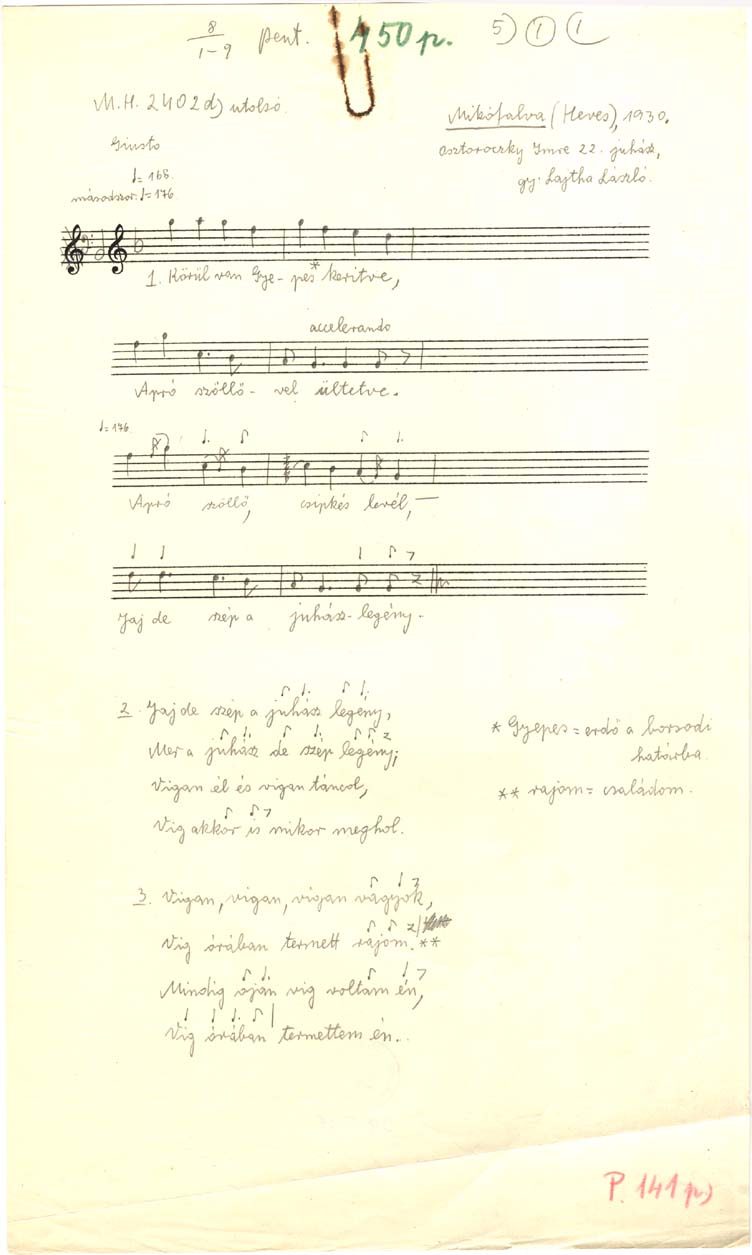 8
1-9 pent. 450 p. 5) 1 1
M.H. 2402d) utolsó.
Mikófalva (Heves), 1930.
Giusto
Asztoroczky Imre 22. juhász,
gy. Lajtha László.
♩= 168.
másodszor: ♩= 176
1. Körül van Gye- pes* keritve,
accelerando
Apró szöllő- vel ültetve.
♩= 176
Apró szöllő, csipkés levél,
Jaj de szép a juhász- legény.
2. Jaj de szép a juhász legény,
Mer a juhász de szép legény;
Vigan él és vigan táncol,
Vig akkor is mikor meghol.
* Gyepes = erdő a borsodi
határba.
** rajom = családom.
3. Vigan, vigan, vigan vagyok,
Vig órában termett rajom.**
Mindig oján vig voltam én,
Vig órában termettem én..
P. 141 p)